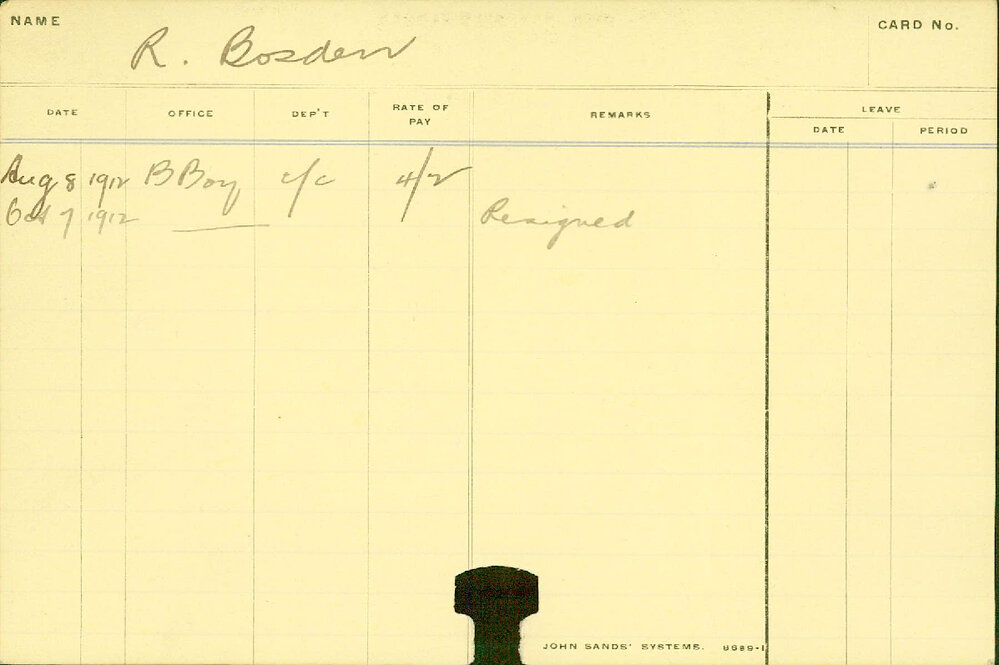 NAME
R. Bosden
CARD No.
DATE OFFICE DEP'T RATE OF PAY REMARKS LEAVE
DATE PERIOD
Aug 8 1912 B Boy c/c 4/2
Oct 7 1912 Resigned
JOHN SANDS' SYSTEMS.